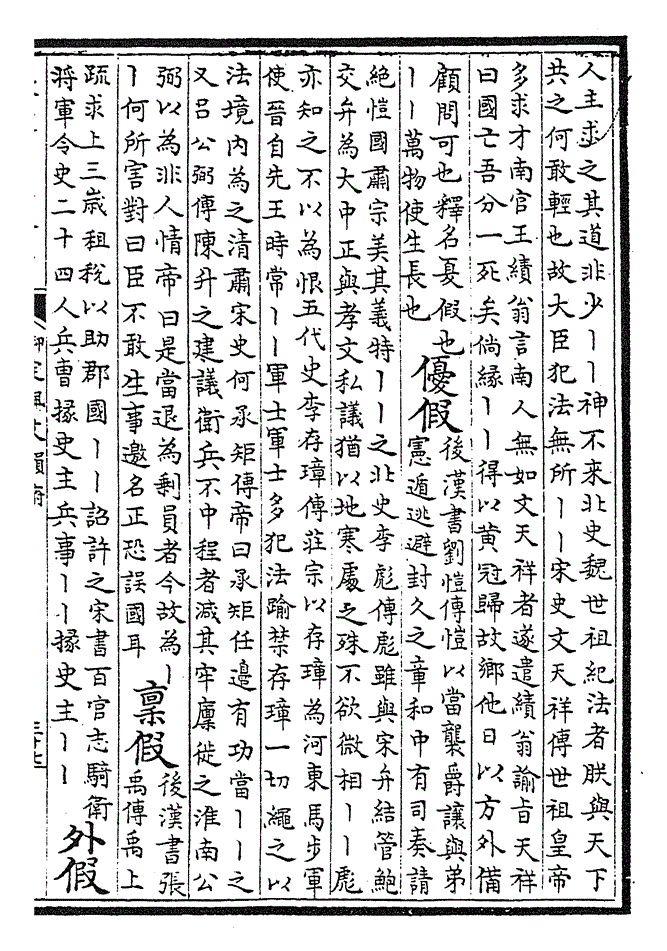 人主求之其道非少丨丨神不來北史魏世祖紀法者朕與天下
共之何敢輕也故大臣犯法無所丨丨宋史文天祥傳世祖皇帝
多求才南官王績翁言南人無如文天祥者遂遣績翁諭旨天祥
曰國亡吾分一死矣倘緣丨丨得以黄冠歸故鄉他日以方外備
顧問可也釋名憂假也
丨丨萬物使生長也
優假
後漢書劉愷傳愷以當襲爵讓與弟
憲遁逃避封久之章和中有司奏請
絶愷國肅宗美其義特丨丨之北史李彪傳彪雖與宋弁結管鮑
交弁為大中正與孝文私議猶以地寒處之殊不欲微相丨丨彪
亦知之不以為恨五代史李存璋傳莊宗以存璋為河東馬步軍
使晉自先王時常丨丨軍士軍士多犯法踰禁存璋一切繩之以
法境内為之清肅宋史何承矩傳帝曰承矩任邊有功當丨丨之
又吕公弼傳陳升之建議衛兵不中程者減其牢廩徙之淮南公
弼以為非人情帝曰是當退為剩員者今故為丨
丨何所害對曰臣不敢生事邀名正恐誤國耳
稟假
後漢書張
禹傳禹上
疏求上三歲租税以助郡國丨丨詔許之宋書百官志騎衛
將軍令史二十四人兵曹掾史主兵事丨丨掾史主丨丨
外假